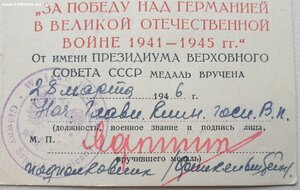 "ЗА ПОБЕДУ НАД ГЕРМАНИЕЙ
В ВЕЛИКОЙ ОТЕЧЕСТВЕННОЙ
ВОЙНЕ 1941—1945 гг."
От имени ПРЕЗИДИУМА ВЕРХОВНОГО
СОВЕТА СССР МЕДАЛЬ ВРУЧЕНА
28 марта 1946 г.
Нач. Главн. клин. госп. В.
(должность, воинское звание и подпись лица,
М. П.
вручившего медаль)
подполковник